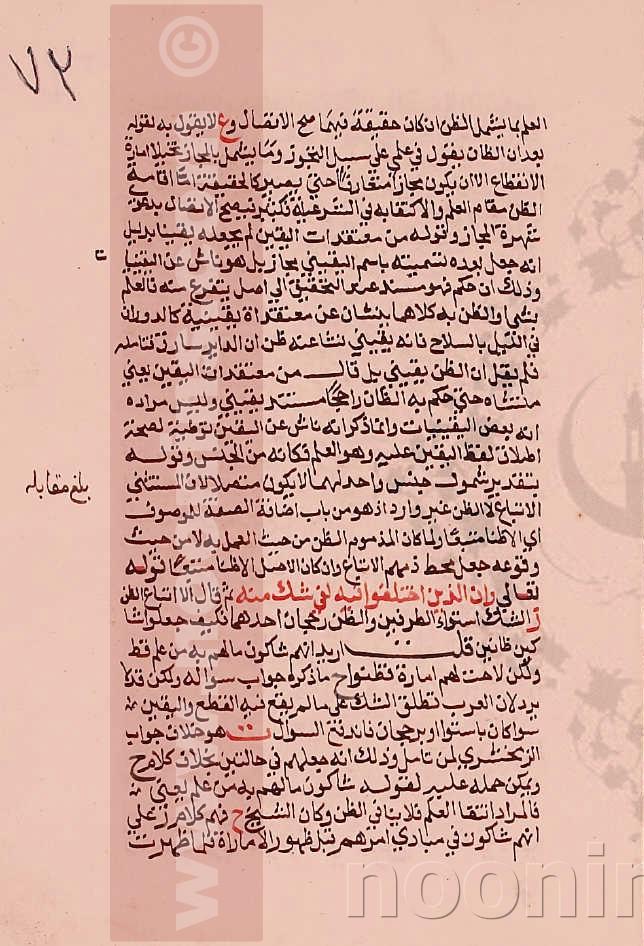 ٧٣
العلم بما يشمل الظن ان كان حقيقة فيهما صح الاتصال وع لا يقول به لقوله
بعد ان الظان يقول في علمي علي سبيل التجوز وما يشمل بالمجاز تخيلا امارة
الانقطاع الا ان يكون مجازا متعارفا حتي يصير كالحقيقة اما اقامة
الظن مقام العلم والاكتفا به في الشرعية فكثير فيصح الاتصال بدعوي
شهرة المجاز وقوله من معتقدات اليقين لم يجعله يقينا بدليل
انه جعل بعده تسميته باسم اليقين مجاز بل هو ناش عن اليقين
وذلك ان حكم فهو مستند عند التحقيق الي اصل يتفرع منه فالعلم
والظن به كلاهما ينشان عن معتقداة يقينية كالدوران
في الليل بالسلاح فانه يقيني نشا عنه ظن ان الداير سارق فتامله
فلم يقل ان الظن يقيني بل قال من معتقدات اليقين يعني
منشاه حتي حكم به الظان راجحا مستند يقيني وليس مراده
انه بعض اليقينيات وانما ذكر انه ناش عن اليقين توطية لصحة
اطلاق لفظ اليقين عليه وهو العلم فكانه من الجنس وقوله
بتقدير شمول جنس واحد لهما لا يكون متصلا لان المستثني
الاتباع لا الظن غير وارد اذ هو من باب اضافة الصفة للموصوف
اي الا ظنا متبعا ولما كان المذموم الظن من حيث العمل به لا من حيث
وقوعه جعل محط ذمهم الاتباع وان كان الاصل الا ظنا متبعا قوله
تعالي وان الذين اختلفوا فيه لفي شك منه ثم قال الا اتباع الظن
ز الشك استواء الطرفين والظن رجحان احدهما فكيف جعلوا شا
كين ظانين قلت اريد انهم شاكون ما لهم به من علم قط
ولكن لاحت لهم امارة فظنوا ح ما ذكره جواب سواله ولكن قد لا
يرد لان العرب تطلق الشك علي ما لم يقع فيه القطع واليقين
سوا كان باستوا او برجحان فاندفع السوال ت هو خلاف جواب
الزمخشري لمن تامل وذلك انه جعلهم في حالتين بخلاف كلام ح
ويمكن حمله عليه لقوله شاكون ما لهم به من علم يعني
فالمراد انتفا العلم فلا ينافي الظن وكان الشيخ ح فهم كلام ز علي
انهم شاكون في مبادي امرهم قبل ظهور الامارة فلما ظهرت
بلغ مقابله
©
www.noonin
noonin